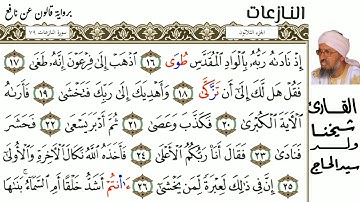 النازعات
برواية قالون عن نافع
الجزء الثلاثون
سورة النازعات ٧٩
إِذْ نَادَىٰهُ رَبُّهُۥ بِالْوَادِ الْمُقَدَّسِ طُوَى ١٦ اَذْهَبِ اِلَىٰ فِرْعَوْنَ إِنَّهُۥ طَغَىٰ ١٧
فَقُلْ هَل لَّكَ إِلَىٰ أَن تَزَّكَّىٰ ١٨ وَأَهْدِيَكَ إِلَىٰ رَبِّكَ فَتَخْشَىٰ ١٩ فَأَرَىٰهُ
الْأَيَةَ الْكُبْرَىٰ ٢٠ فَكَذَّبَ وَعَصَىٰ ٢١ ثُمَّ أَدْبَرَ يَسْعَىٰ ٢٢ فَحَشَرَ
فَنَادَىٰ ٢٣ فَقَالَ أَنَا رَبُّكُمُ الْأَعْلَىٰ ٢٤ فَأَخَذَهُ اللَّهُ نَكَالَ الْأَخِرَةِ وَالْأُولَىٰ
٢٥ إِنَّ فِي ذَٰلِكَ لَعِبْرَةً لِّمَن يَخْشَىٰ ٢٦ ءَا۬نتُمُۥٓ أَشَدُّ خَلْقًا أَمِ السَّمَآءُ بَنَىٰهَا
القارئ
شيخنا
ولد
سيد الحاج